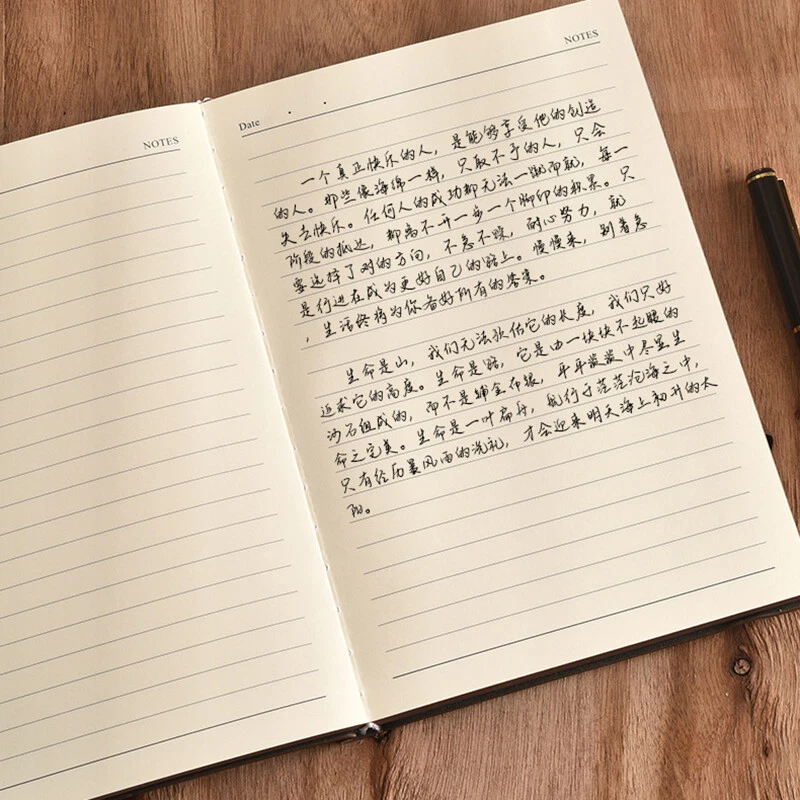 NOTES
NOTES
Date
一个真正快乐的人，是能够享受他的创造
的人。那些像海绵一样，只取不予的人，只会
失去快乐。任何人的成功都无法一蹴而就，每一
阶段的抵达，都离不开一步一个脚印的积累。只
要选择了对的方向，不急不躁，耐心努力，就
是行进在成为更好自己的路上。慢慢来，别着急
，生活终将为你备好所有的答案。
生命是山，我们无法预估它的长度，我们只好
追求它的高度。生命是路，它是由一块块不起眼的
沙石组成的，而不是铺金布银，平平淡淡中尽显生
命之完美。生命是一叶扁舟，航行于茫茫沧海之中，
只有经历暴风雨的洗礼，才会迎来明天海上初升的太
阳。